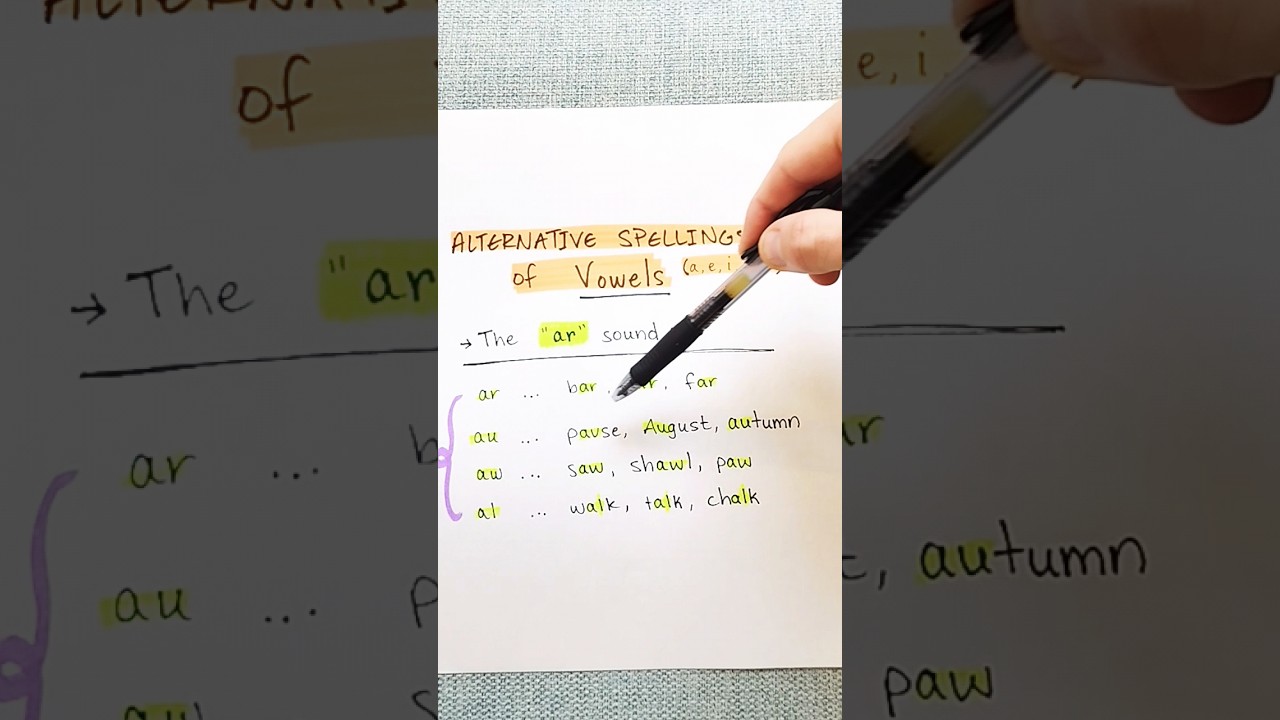 ALTERNATIVE SPELLINGS
of Vowels (a, e, i
→ The "ar" sound
ar ... bar, far
au ... pause, August, autumn
aw ... saw, shawl, paw
al ... walk, talk, chalk